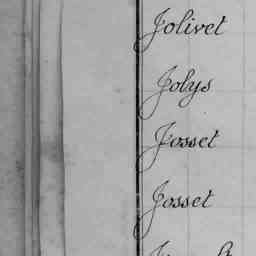 Jolivet
Jolys
Josset
Josset